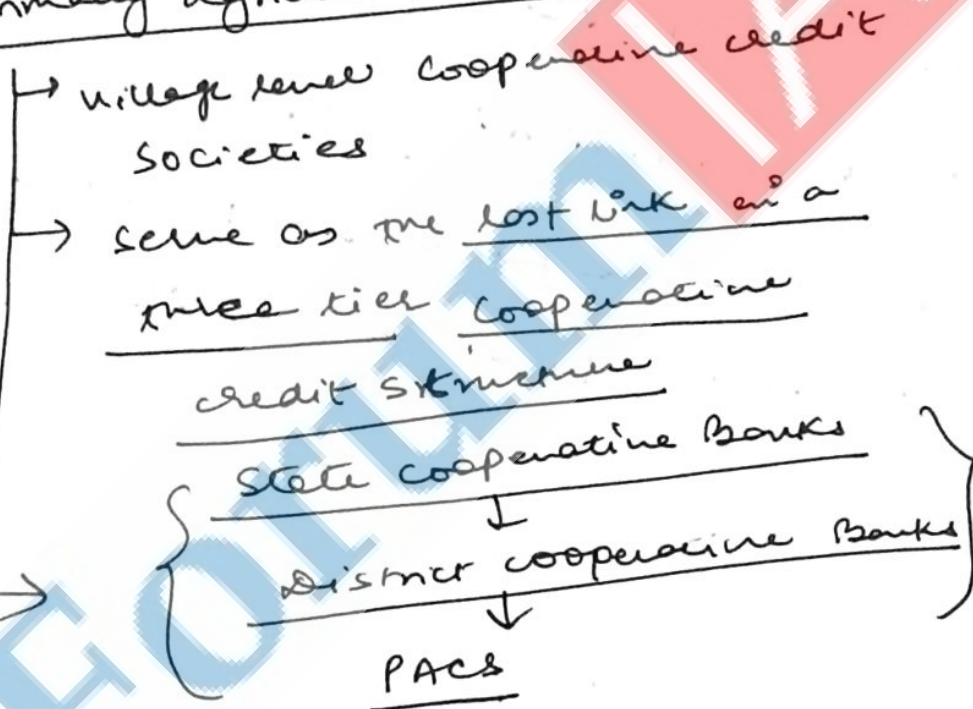 → village level cooperative credit
societies
→ serve as the last link in a
three tier cooperative
credit structure
State cooperative Banks
↓
District cooperative Banks
↓
PACS
Forum